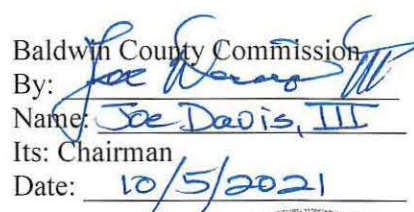 Baldwin County Commission
By: Joe Davis III
Name: Joe Davis, III
Its: Chairman
Date: 10/5/2021